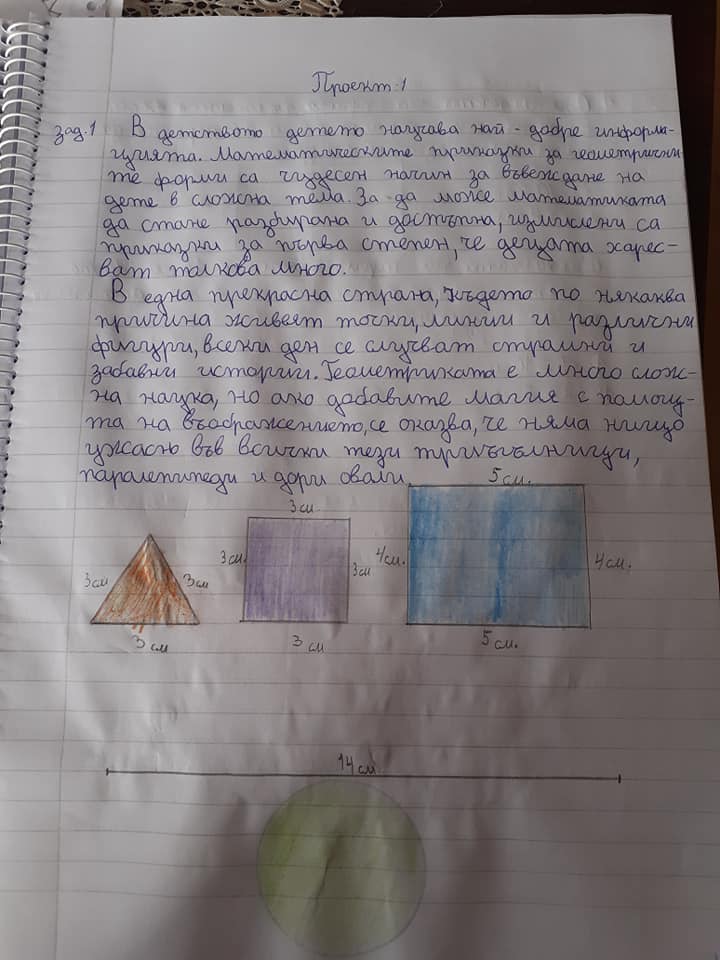 Проект 1
зад.1 В детството детето научава най-добре информа-
цията. Математическите приказки за геометрични-
те форми са чудесен начин за въвеждане на
дете в сложна тема. За да може математиката
да стане разбирана и достъпна, измислени са
приказки за първа степен, че децата харес-
ват толкова много.
В една прекрасна страна, където по някаква
причина живеят точки, линии и различни
фигури, всеки ден се случват странни и
забавни истории. Геометриката е много слож-
на наука, но ако добавите магия с помощ-
та на въображението, се оказва, че няма нищо
ужасно във всички тези триъгълници,
паралепипеди и дори овали.
5 см.
3 см
3 см 3 см 3 см 3 см 4 см. 4 см.
3 см 3 см 5 см.
14 см